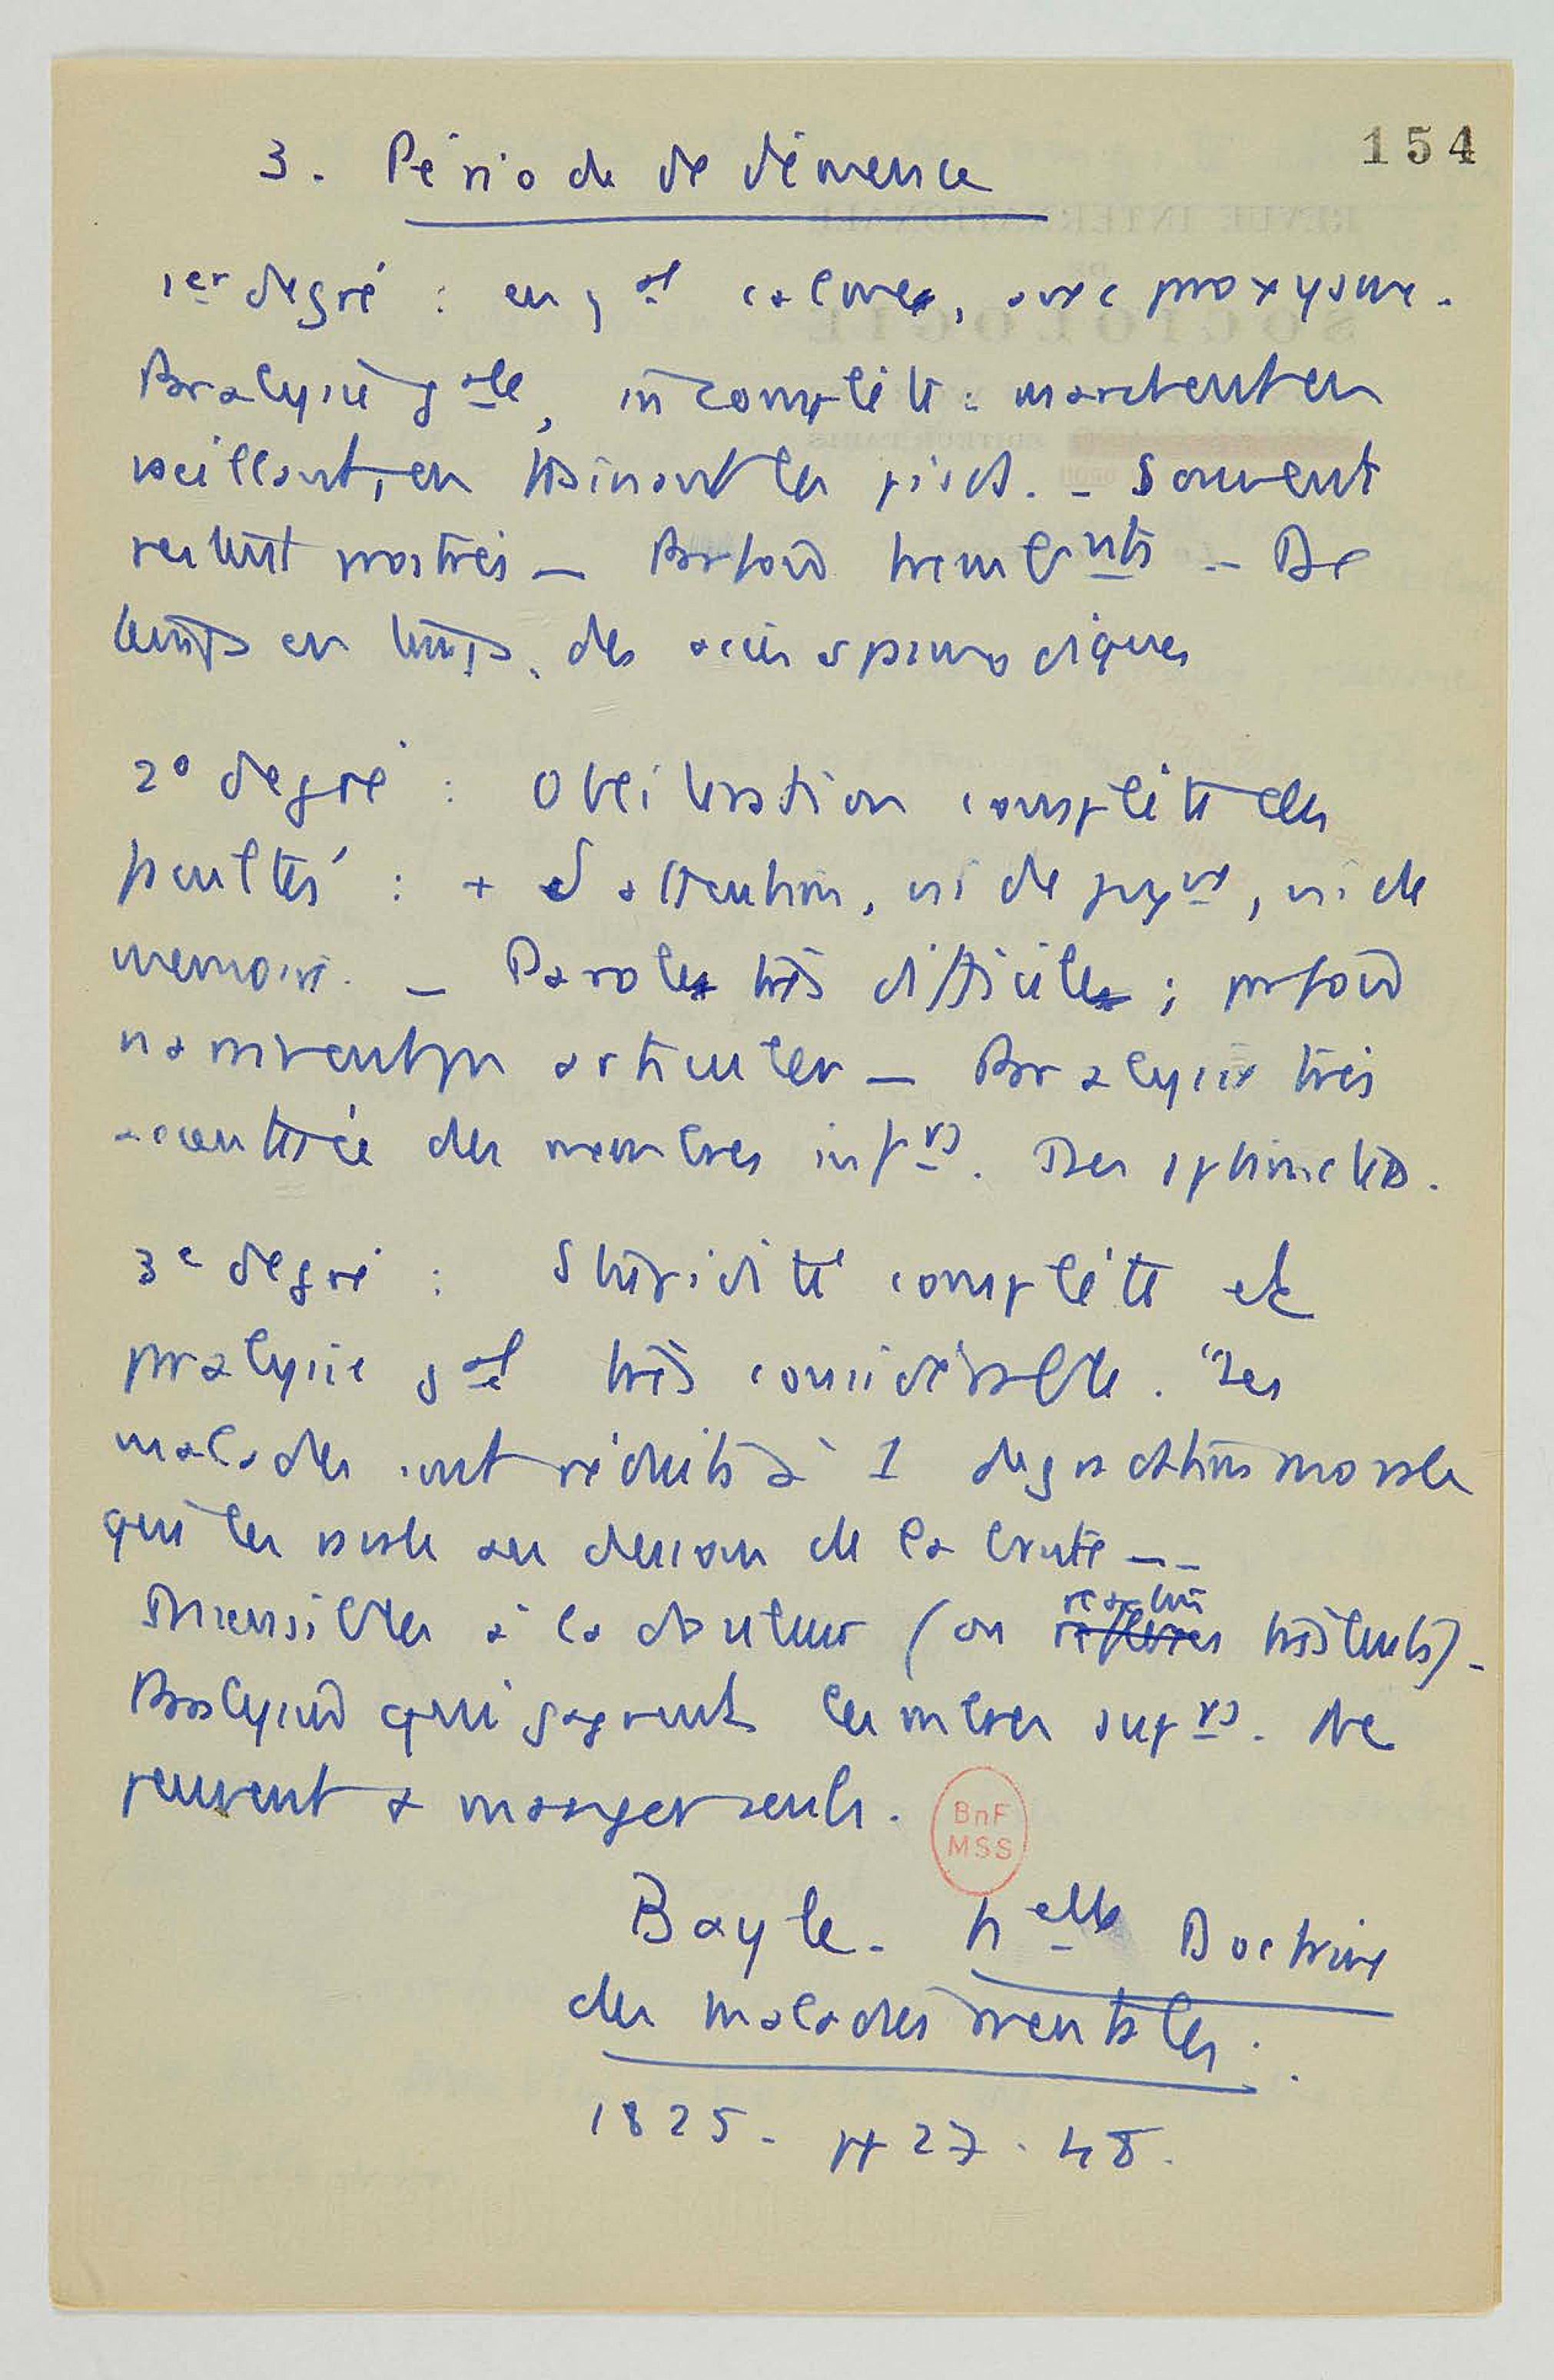 154
3. Période de démence
1er degré : en gal calmes, avec paroxysme.
Paralysie gale, incomplète : marchent en
vacillant, en traînant les pieds. - Souvent
restent prostrés - Parfois tremblnts - De
temps en temps, des accès spasmodiques
2° degré : Oblitération complète des
facultés : + d'attention, ni de jugmt, ni de
mémoire. - Parole très difficile ; parfois
ne peuvent pas articuler - Paralysie très
accentuée des membres infrs. Des sphincters.
3e degré : Stupidité complète et
paralysie gale très considérable. "Les
malades sont réduits à 1 dégradation morale
qui les ravale au dessous de la brute --
Insensibles à la douleur (ou réaction très lente).
Paralysie qui gagne les mbres suprs. Ne
peuvent + manger seuls.
BnF
MSS
Bayle. Nelle Doctrine
des maladies mentales.
1825. pp 27-48.